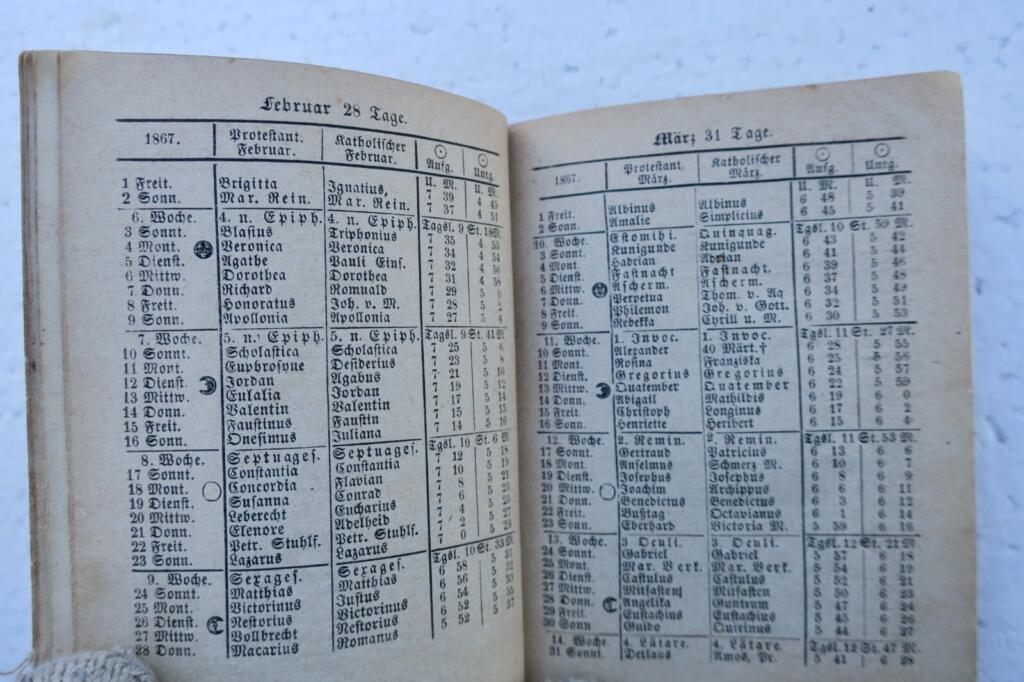 Februar 28 Tage.
1867. Protestant. Februar. Katholischer Februar. ☉ Aufg. ☉ Untg.
U. M. U. M.
1 Freit. Brigitta Ignatius, 7 39 4 49
2 Sonn. Mar. Rein. Mar. Rein. 7 37 4 51
6. Woche 4. n. Epiph. 4. n. Epiph. Tagsl. 9 St. 18 M.
3 Sonnt. Blasius Triphonius 7 35 4 53
4 Mont. Veronica Veronica 7 34 4 54
5 Dienst. Agathe Pauli Eins. 7 32 4 56
6 Mittw. Dorothea Dorothea 7 31 4 58
7 Donn. Richard Romuald 7 29 5 0
8 Freit. Honoratus Joh. v. M. 7 28 5 2
9 Sonn. Apollonia Apollonia 7 27 5 4
7. Woche. 5. n. Epiph. 5. n. Epiph. Tagsl. 9 St. 41 M.
10 Sonnt. Scholastica Scholastica 7 25 5 6
11 Mont. Euphrosyne Desiderius 7 23 5 8
12 Dienst. Jordan Agabus 7 21 5 10
13 Mittw. Eulalia Jordan 7 19 5 12
14 Donn. Valentin Valentin 7 17 5 14
15 Freit. Faustinus Faustin 7 15 5 15
16 Sonn. Onesimus Juliana 7 14 5 16
8. Woche. Septuages. Septuages. Tagsl. 10 St. 6 M.
17 Sonnt. Constantia Constantia 7 12 5 18
18 Mont. Concordia Flavian 7 10 5 19
19 Dienst. Susanna Conrad 7 8 5 21
20 Mittw. Leberecht Eucharius 7 6 5
21 Donn. Elenore Adelheid 7 4 5 25
22 Freit. Petr. Stuhlf. Petr. Stuhlf. 7 2 5
23 Sonn. Lazarus Lazarus 7 0 5 29
9. Woche. Sexages. Sexages. Tagsl. 10 St. 33 M.
24 Sonnt. Matthias Matthias 6 58 5 31
25 Mont. Victorinus Justus 6 56 5 32
26 Dienst. Nestorius Victorinus 6 54 5
27 Mittw. Vollbrecht Nestorius 6 52 5 35
28 Donn. Macarius Romanus 6 52 5 37
März 31 Tage.
1867. Protestant. März. Katholischer März. ☉ Aufg. ☉ Untg.
U. M. U. M.
1 Freit. Albinus Albinus 6 48 5 39
2 Sonn. Amalie Simplicius 6 45 5 41
10. Woche. Estomihi. Quinquag. Tagsl. 10 St. 59 M.
3 Sonnt. Kunigunde Kunigunde 6 43 5 42
4 Mont. Hadrian Adrian 6 41 5 44
5 Dienst. Fastnacht Fastnacht. 6 39 5 46
6 Mittw. Ascherm. Ascherm. 6 37 5 48
7 Donn. Perpetua Thom. v. Aq 6 34 5 49
8 Freit. Philemon Joh. v. Gott. 6 32 5 51
9 Sonn. Rebekka Cyrill u. M. 6 30 5 53
11. Woche. 1. Invoc. 1. Invoc. Tagsl. 11 St. 27 M.
10 Sonnt. Alexander 40 Märt.† 6 28 5 55
11 Mont. Rosina Franziska 6 26 5 56
12 Dienst. Gregorius Gregorius 6 24 5 57
13 Mittw. Quatember Quatember 6 22 5 59
14 Donn. Abigail Mathildis 6 19 6 0
15 Freit. Christoph Longinus 6 17 6 2
16 Sonn. Henriette Heribert 6 15 6 4
12. Woche. 2. Remin. 2. Remin. Tgsl. 11 St. 53 M.
17 Sonnt. Gertraud Patricius 6 13 6 6
18 Mont. Anselmus Schmerz M. 6 10 6 7
19 Dienst. Josephus Josephus 6 8 6 9
20 Mittw. Joachim Archippus 6 6 6 11
21 Donn. Benedictus Benedictus 6 3 6 12
22 Freit. Bußtag Octavianus 6 1 6 14
23 Sonn. Eberhard Victoria M. 5 59 6 16
13. Woche. 3 Oculi. 3. Oculi. Tgsl. 12 St. 21 M.
24 Sonnt. Gabriel Gabriel 5 57 6 18
25 Mont. Mar. Verk. Mar. Verk. 5 54 6 19
26 Dienst. Castulus Castulus 5 52 6 21
27 Mittw. Mitfasten Mitfasten 5 50 6 23
28 Donn. Angelika Guntrum 5 47 6 24
29 Freit. Eustachius Eustachius 5 45 6 26
30 Sonn. Guido Quirinus 5 44 6 27
14. Woche. 4. Lätare. 4. Lätare. Tgsl. 12 St. 47 M.
31 Sonnt. Detlaus Amos, Pr. 5 41 6 28